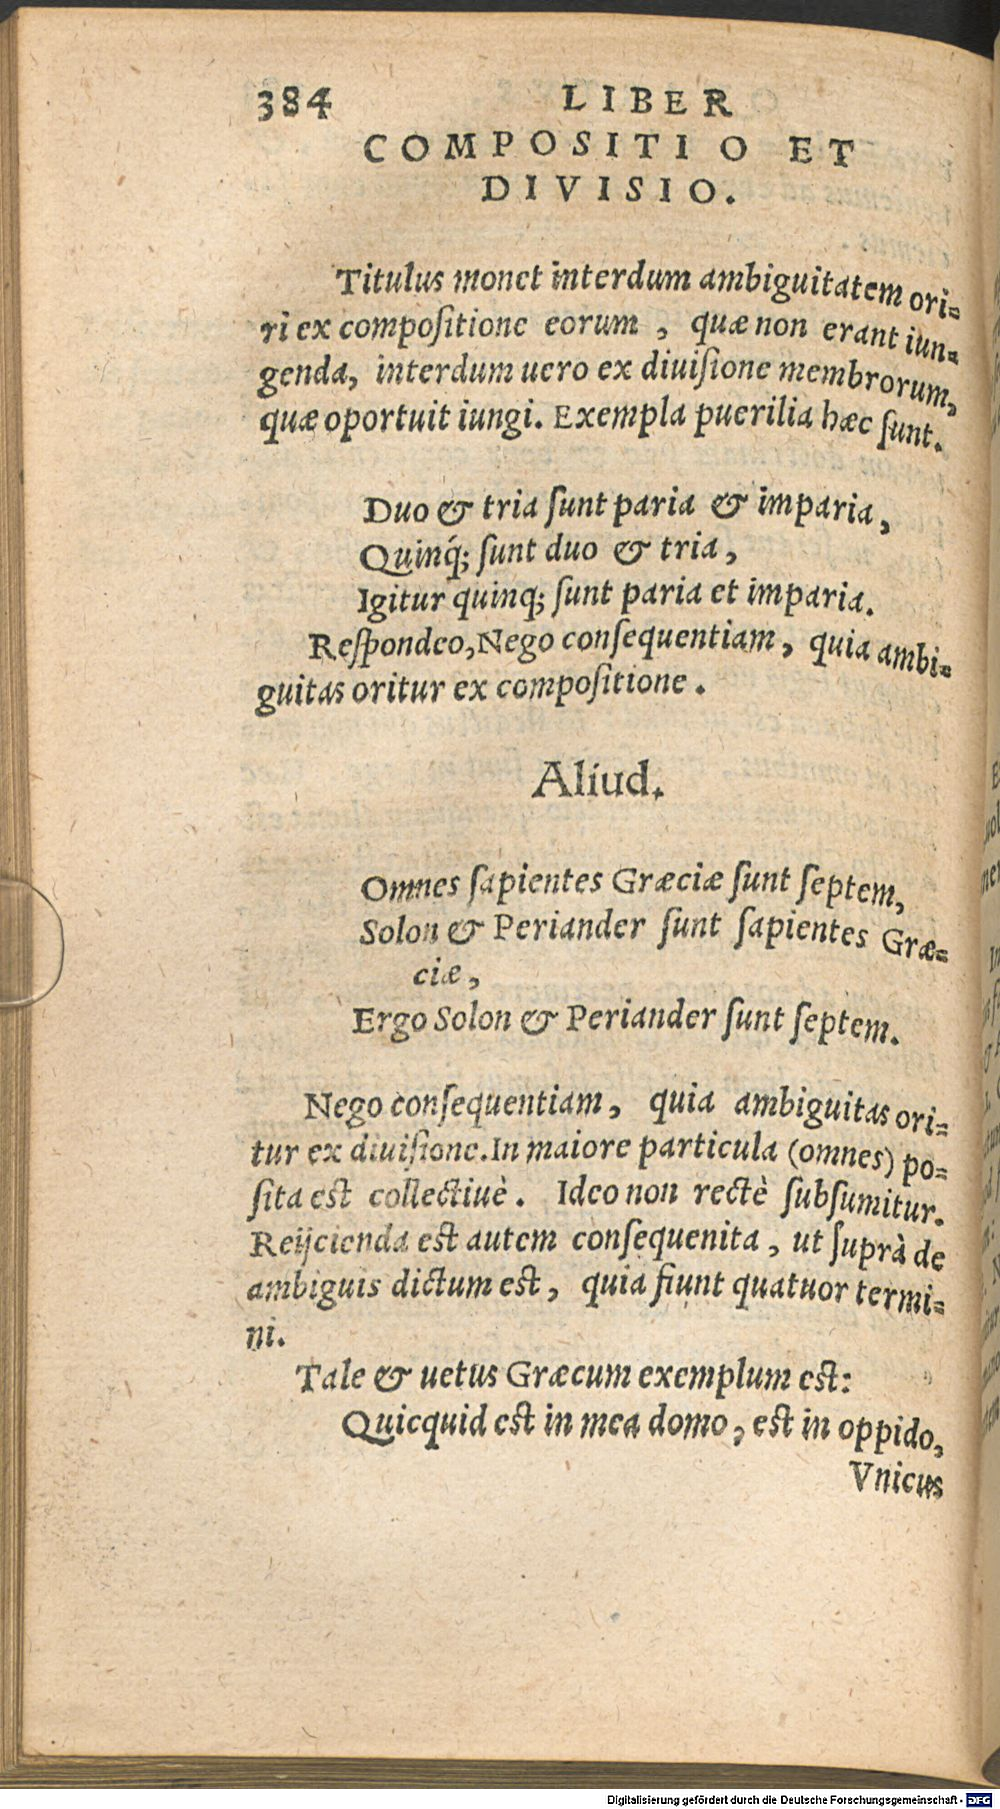 384 LIBER
COMPOSITIO ET
DIVISIO.
Titulus monet interdum ambiguitatem ori-
ri ex compoſitione eorum, quæ non erant iun-
genda, interdum uero ex diuiſione membrorum,
quæ oportuit iungi. Exempla puerilia hæc ſunt.
Duo & tria ſunt paria & imparia,
Quinq́; ſunt duo & tria,
Igitur quinq; ſunt paria et imparia.
Reſpondeo, Nego conſequentiam, quia ambi-
guitas oritur ex compoſitione.
Aliud.
Omnes ſapientes Græciæ ſunt ſeptem,
Solon & Periander ſunt ſapientes Græ-
ciæ,
Ergo Solon & Periander ſunt ſeptem.
Nego conſequentiam, quia ambiguitas ori-
tur ex diuiſione. In maiore particula (omnes) po-
ſita est collectiuè. Ideo non rectè ſubſumitur.
Reijcienda est autem conſequenita, ut ſuprà de
ambiguis dictum est, quia fiunt quatuor termi-
ni.
Tale & uetus Græcum exemplum est:
Quicquid est in mea domo, est in oppido,
Vnicus
Digitalisierung gefördert durch die Deutsche Forschungsgemeinschaft - DFG